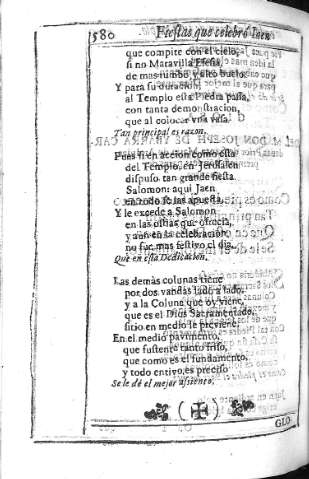 580 Fiestas que celebrò Iaen
que compite con el cielo,
si no Maravilla Efesia,
de mas rumbo, y alto buelo.
Y para su duracion,
al Templo esta Piedra passa,
con tanta demonstracion,
que al colocar vna vasa.
Tan principal es razon.
Pues si en accion como esta
del Templo, en Jerusalen
dispuso tan grande fiesta.
Salomon: aqui Jaen
en todo se las apuesta.
Y le excede a Salomon
en las ostias que ofrecia,
y aun en la celebracion
no fue mas festivo el dia,
Que en esta Dedicacion.
Las demàs colunas tiene
por dos vandas lado a lado,
y a la Coluna que oy viene,
que es el Dios Sacramentado,
sitio en medio le previene.
En el medio pavimento,
que sustente tanto friso,
que como es el fundamento,
y todo estivo, es preciso
Se le dè el mejor assiento.
GLO-